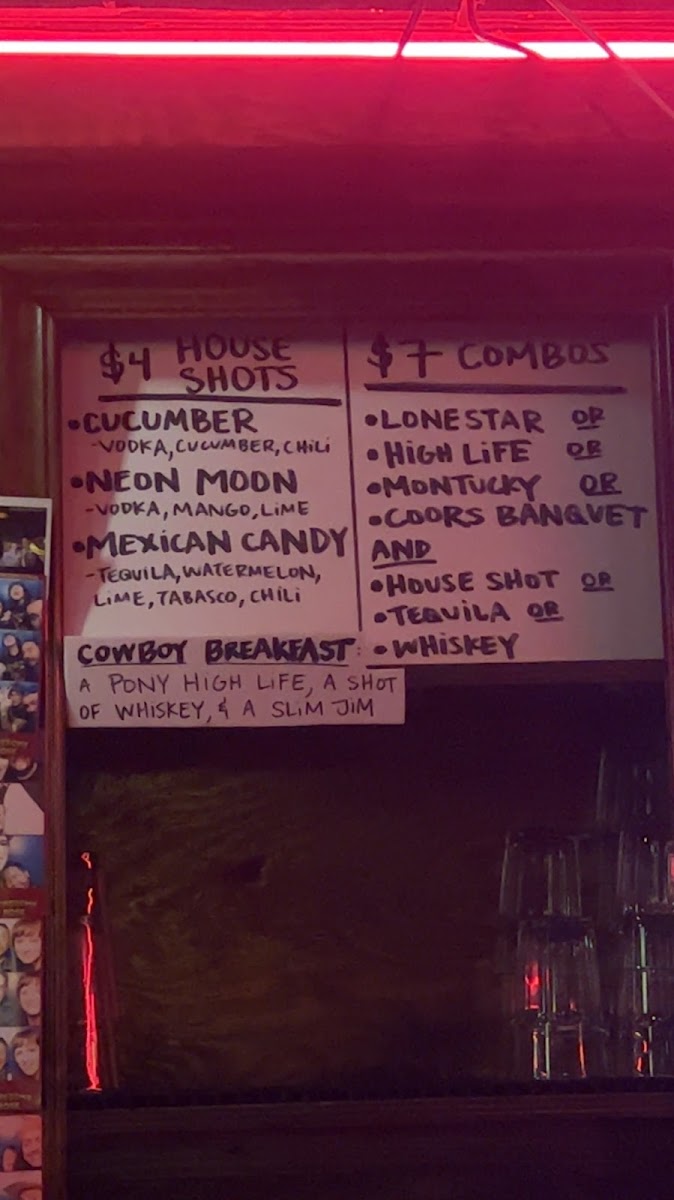 $4 HOUSE
SHOTS
•CUCUMBER
-VODKA, CUCUMBER, CHiLi
•NEON MOON
-VODKA, MANGO, LIME
•MEXiCAN CANDY
-TEQUILA, WATERMELON,
LiME, TABASCO, CHiLi
COWBOY BREAKFAST:
A PONY HIGH LIFE, A SHOT
OF WHISKEY, & A SLiM JiM
$7 COMBOS
•LONESTAR OR
•HiGH LiFE OR
•MONTUCKY OR
•COORS BANQUET
AND
•HOUSE SHOT OR
•TEQUILA OR
•WHiSKEY